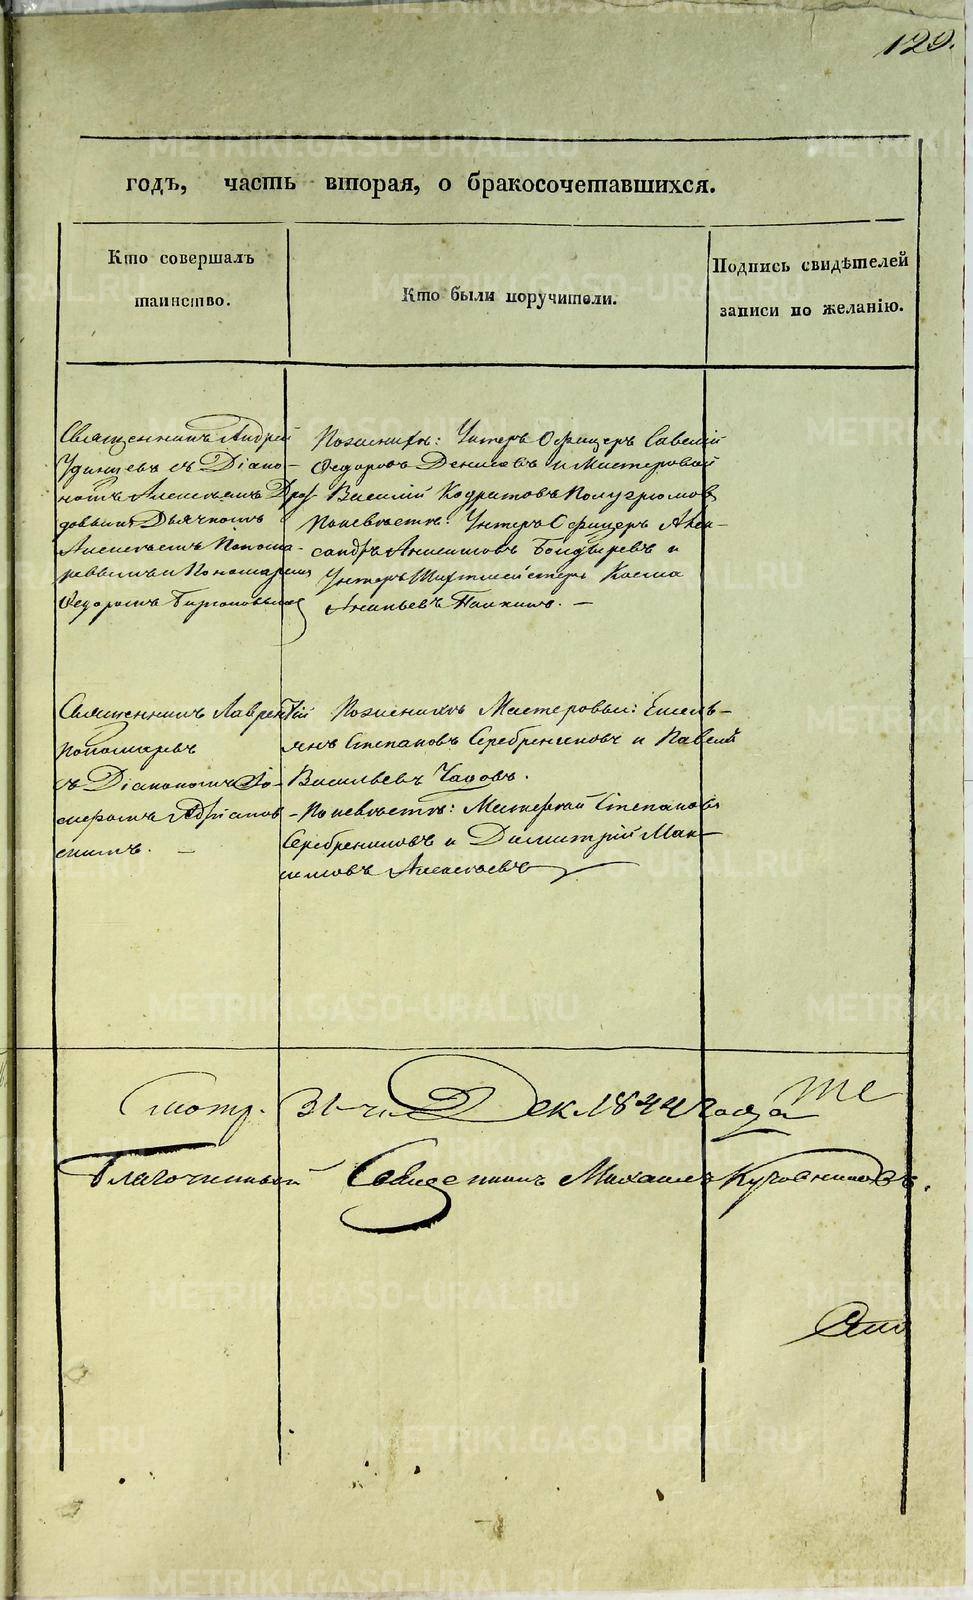 129.
годъ, часть вторая, о бракосочетавшихся.
Кто совершалъ
таинство.
Кто были поручители.
Подпись свидѣтелей
записи по желанію.
Священникъ Андрей
Удинцевъ съ Діако-
номъ Алексѣемъ
Дьячкомъ
Алексѣемъ Понома-
ревымъ и Пономаремъ
Федоромъ
Поженихѣ: Унтеръ Офицеръ Савелій
Федоровъ Денисовъ и Мастеровой
Василій Кодратовъ Полугрюмовъ
Поневѣстѣ: Унтеръ Офицеръ Алек-
сандръ Анисимовъ Болдыревъ и
Унтеръ Шихтмейстеръ Козма
Ананьевъ Палкинъ. —
Священникъ Лаврентій
Пономаревъ
съ Діакономъ Іо-
сифомъ Адріанов-
скимъ. —
Поженихѣ Мастеровые: Емель-
янъ Степановъ Серебренниковъ и Павелъ
Васильевъ Чадовъ.
- Поневѣстѣ: Мастеровой Степановъ
Серебренниковъ и Димитрій Мак-
симовъ Алексѣевъ
Смотр. 31-го Дек. 1844 года
Благочинный Священникъ Михаилъ
METRIKI.GASO-URAL.RU